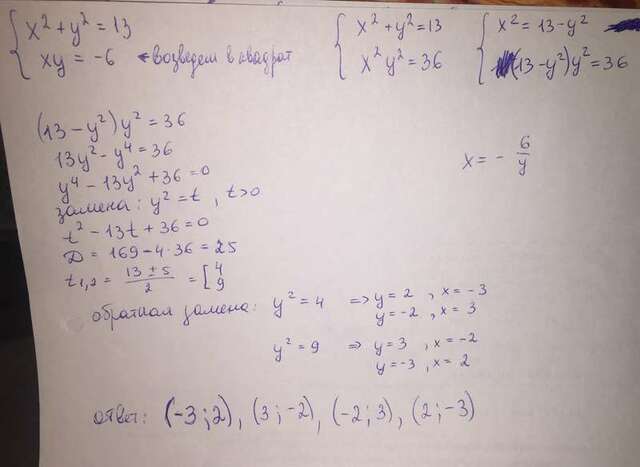 { x² + y² = 13
xy = -6 ← возведем в квадрат
{ x² + y² = 13
x² y² = 36
{ x² = 13 - y²
(13 - y²) y² = 36
(13 - y²) y² = 36
13y² - y⁴ = 36
y⁴ - 13y² + 36 = 0
замена: y² = t , t > 0
t² - 13t + 36 = 0
D = 169 - 4·36 = 25
t₁,₂ = (13 ± 5)/2 = [ 4 9
x = - 6/y
обратная замена: y² = 4 ⇒ y = 2 , x = -3
y = -2 , x = 3
y² = 9 ⇒ y = 3 , x = -2
y = -3 , x = 2
ответ: (-3 ; 2) , (3 ; -2) , (-2 ; 3) , (2 ; -3)